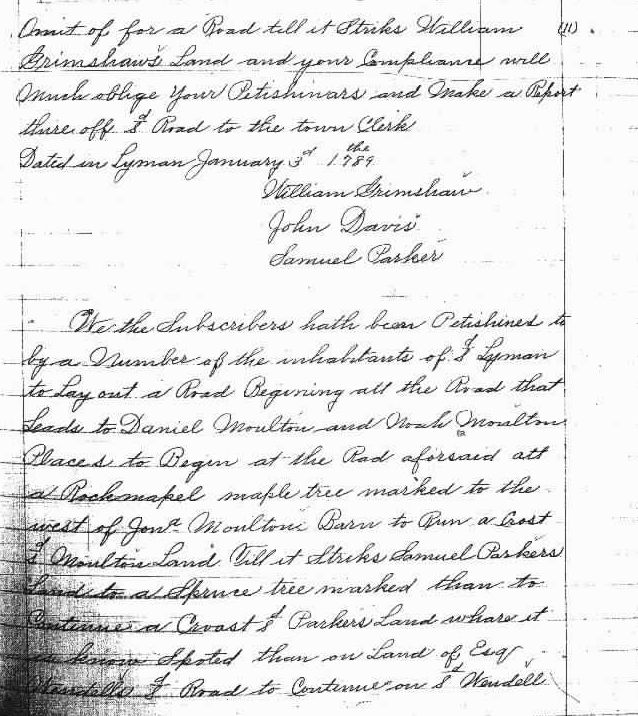 Omit of for a Road till it Striks William (11).
Grimshaw's Land and your Compliance will
Much oblige Your Petishinars and Make a Report
thire off Sd Road to the town Clerk
Dated in Lyman January 3d the 1789
William Grimshaw
John Davis
Samuel Parker
We the Subscribers hath been Petishined to
by a Number of the inhabitants of Sd Lyman
to Lay out a Road Begining att the Road that
Leads to Daniel Moulton and Noah Moulton
Places to Begin at the Rad aforsaid att
a Rockmapel maple tree marked to the
west of Jonn Moultons Barn to Run a Crost
Sd Moulton Land Till it Striks Samuel Parkers
Land to a Spruce tree marked than to
Contenue a Croast Sd Parkers Land whare it
is know Spoted than on Land of Esq
Wendells Sd Road to Contenue on Sd Wendell